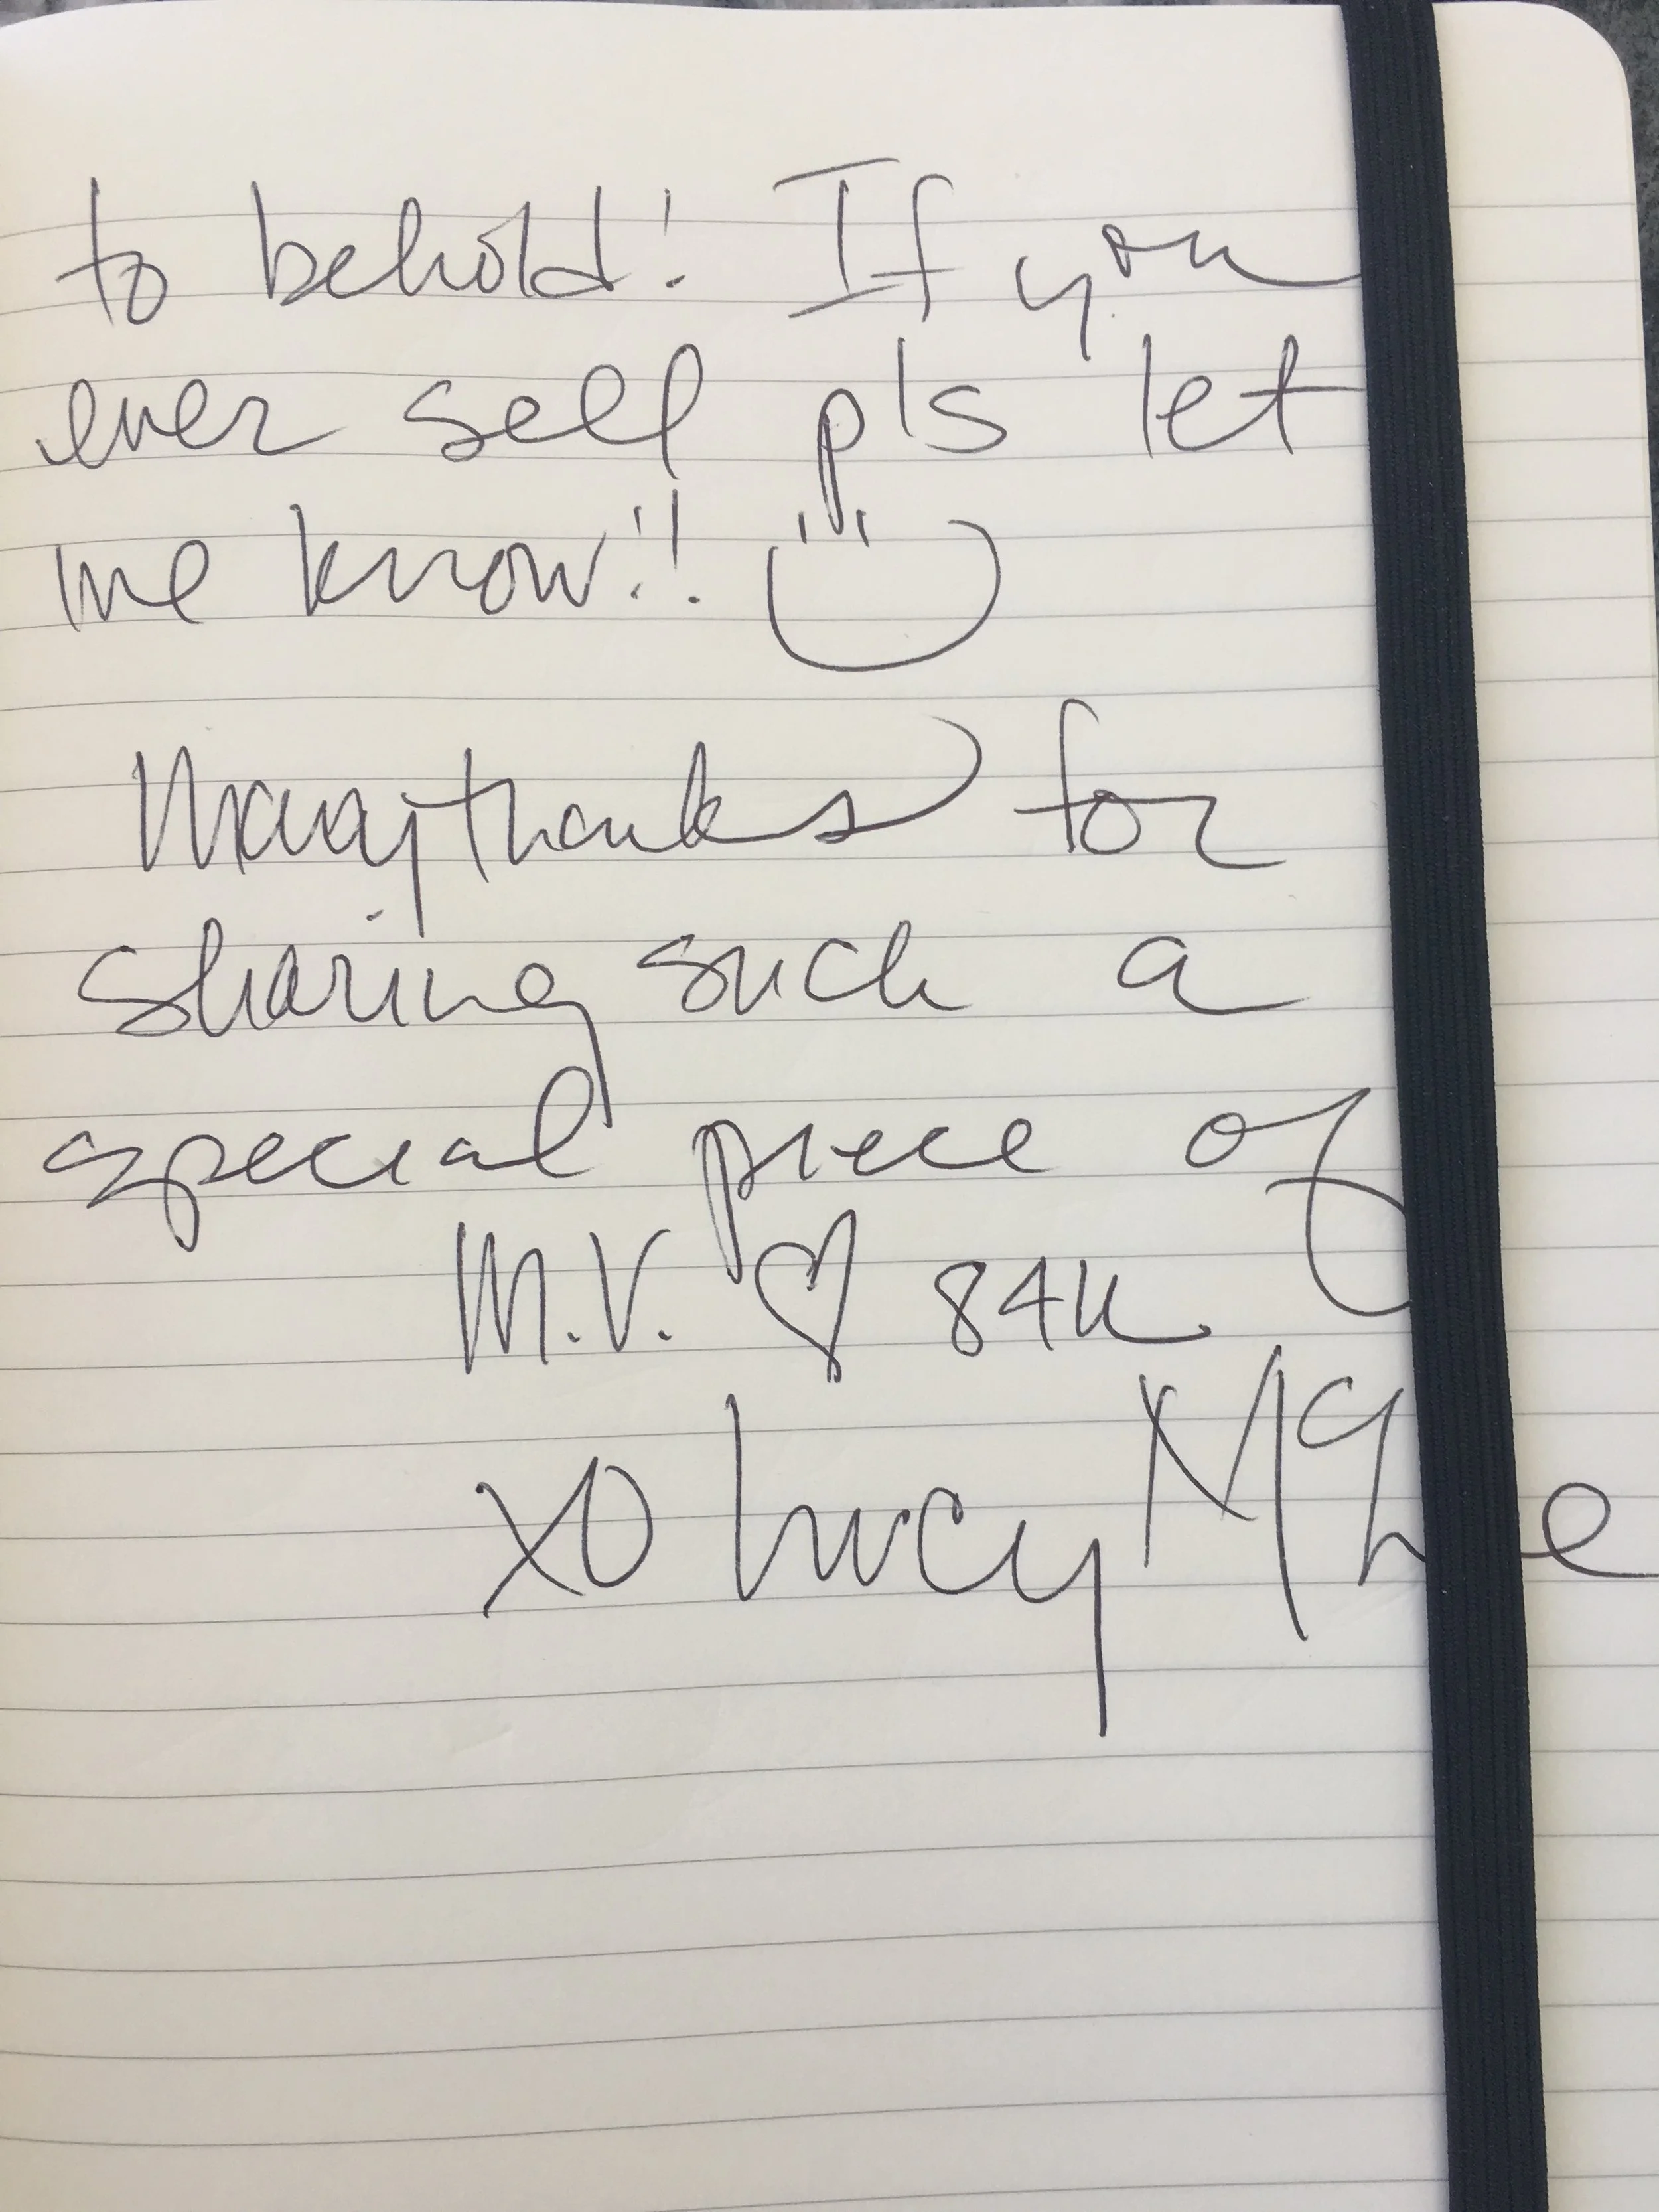 to behold! If you
ever sell pls let
me know!!
Many thanks for
sharing such a
special piece of
M.V. ♡ 84K
xo Lucy